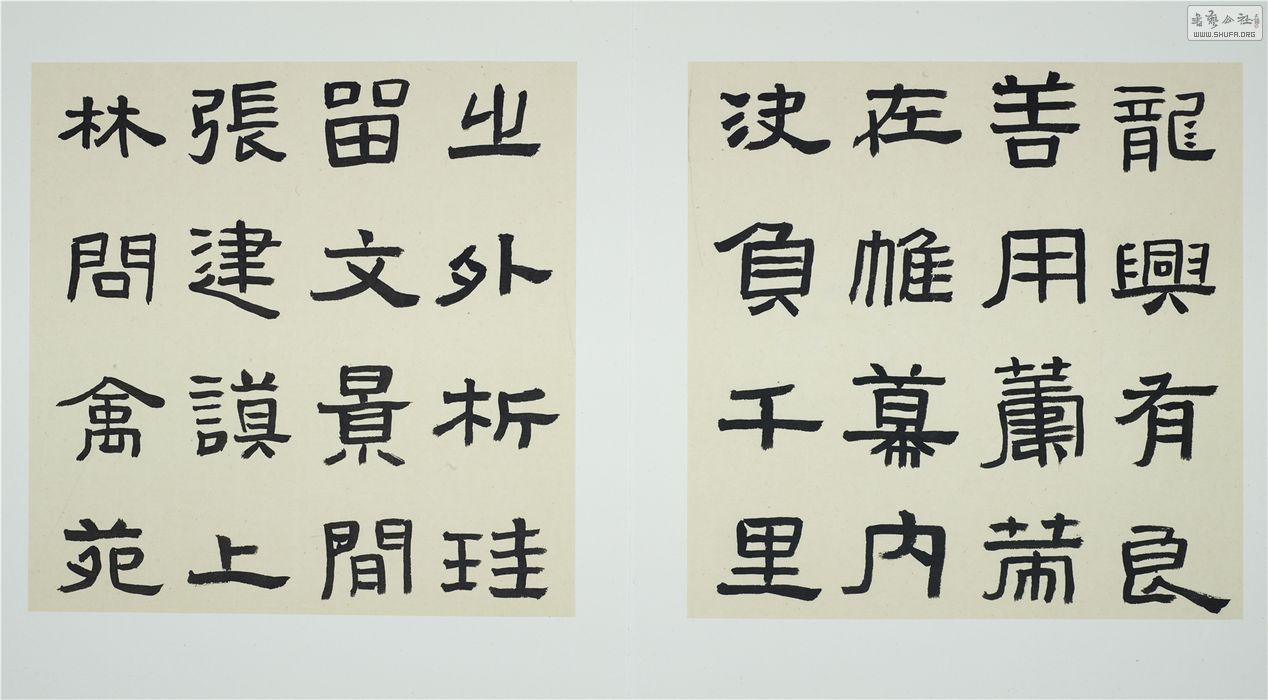 龍興有良
善用籌策
在帷幕內
決負千里
之外析珪
留文景間
張建謨上
林問禽苑
書藝公社
WWW.SHUFA.ORG